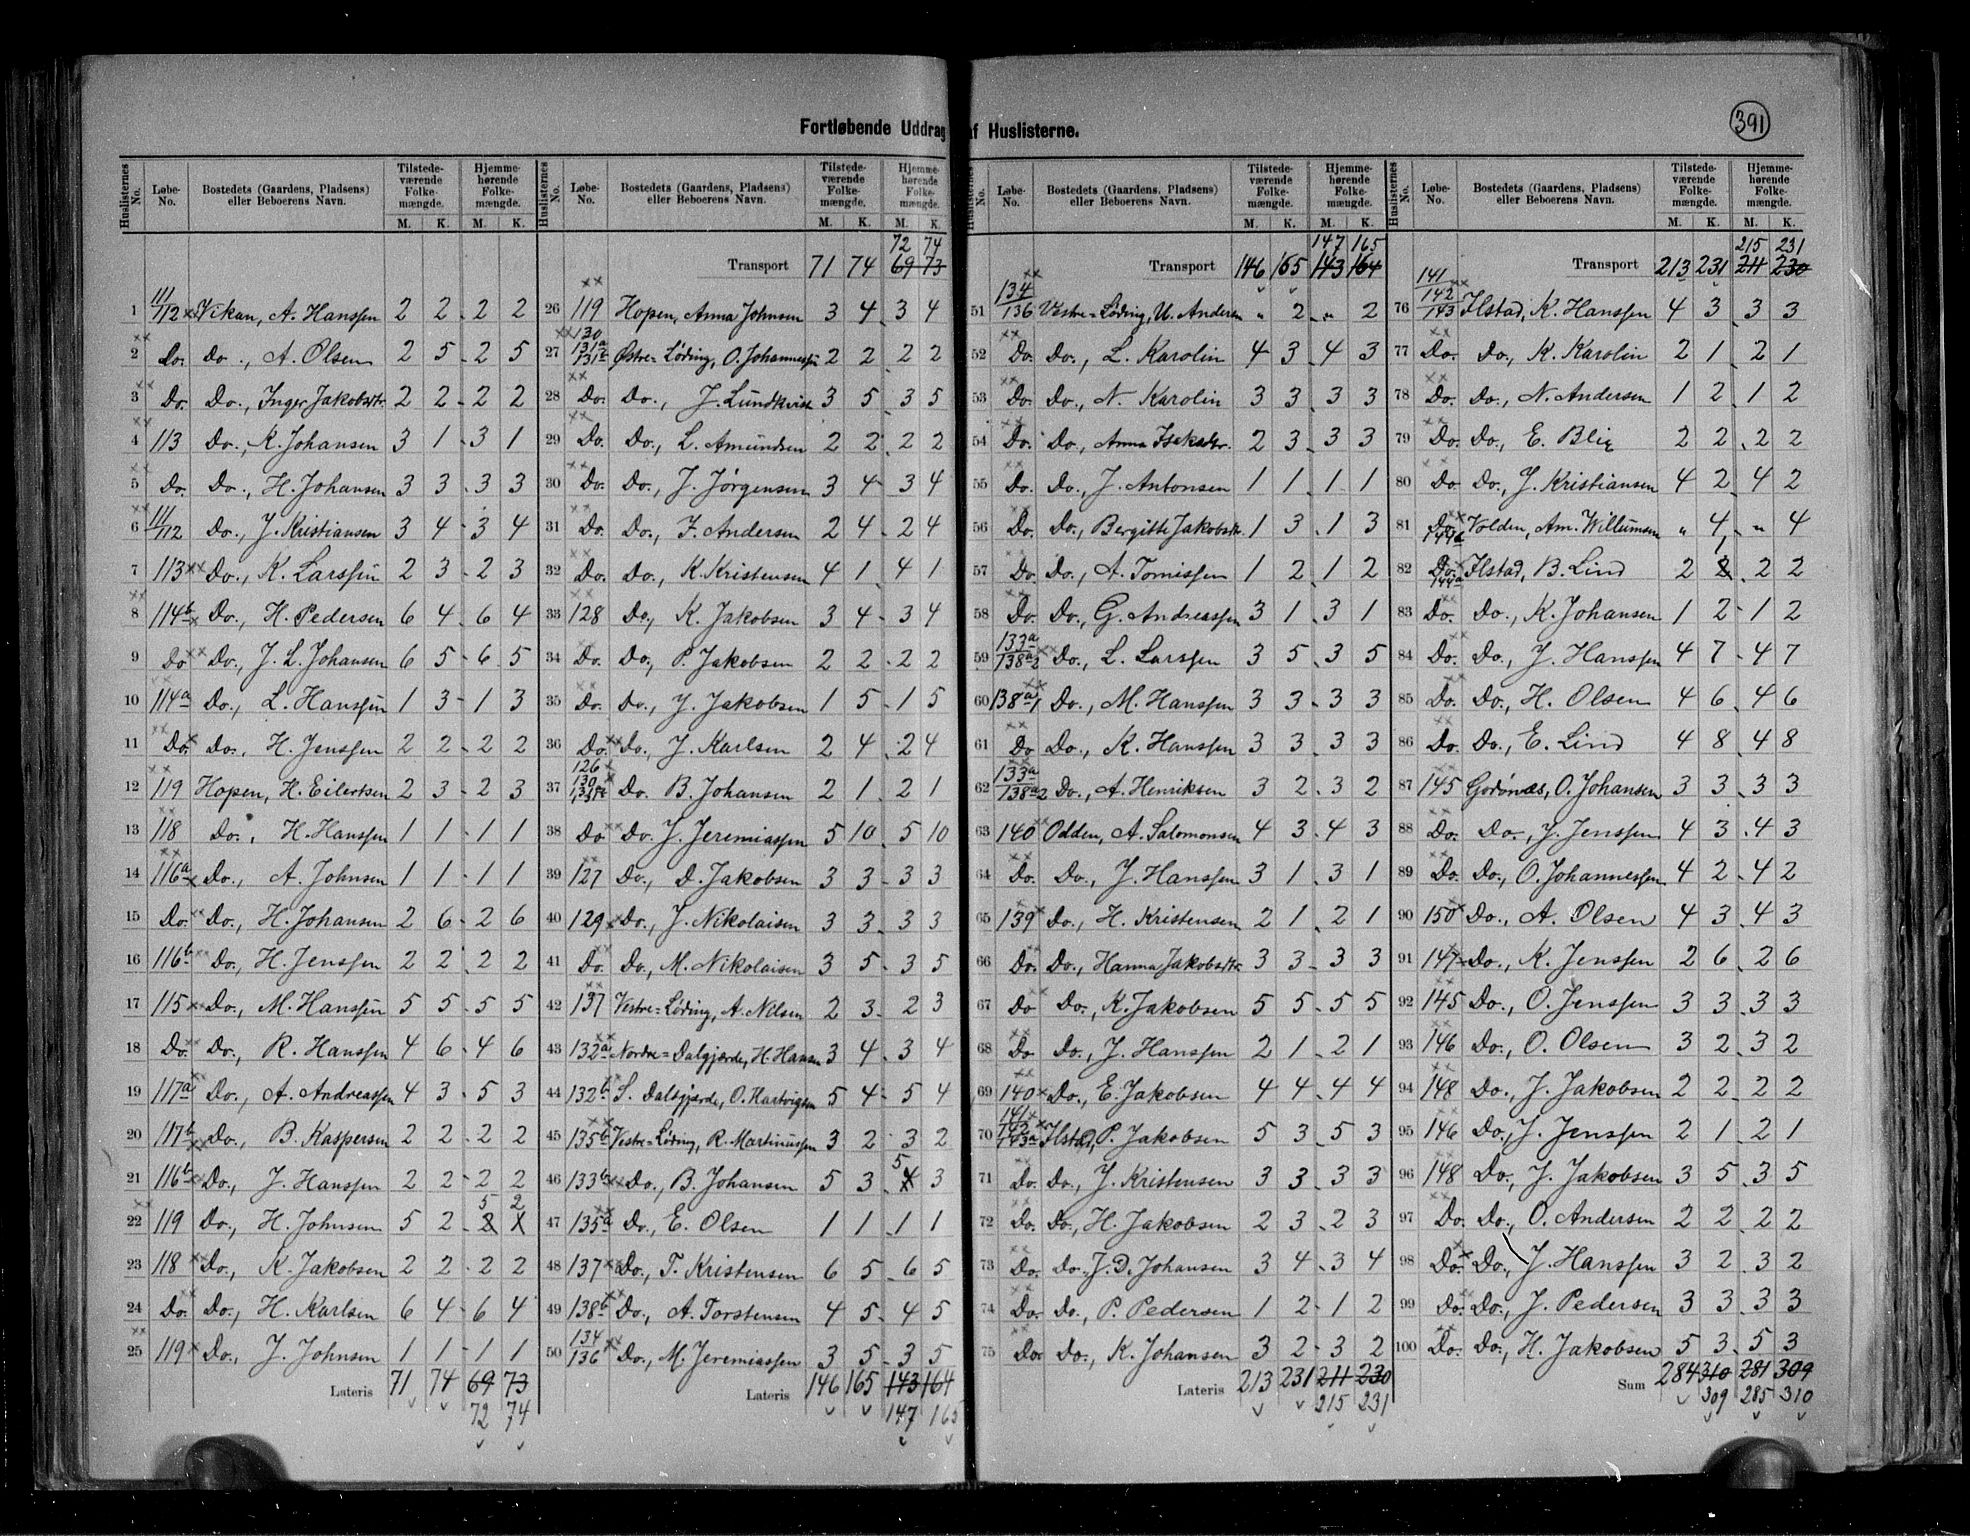 391
Fortløbende Uddrag af Huslisterne.
Huslisternes No. Løbe-No. Bostedets (Gaardens, Pladsens) eller Beboerens Navn. Tilstedeværende Folkemængde. M. K. Hjemmehørende Folkemængde. M. K.
1 111/112 Vikan, A. Hanssen 2 2 2 2
2 Do. Do., A. Olsen 2 5 2 5
3 Do. Do., Inger Jakobsdtr. 2 2 2 2
4 113 Do., K. Johansen 3 1 3 1
5 Do. Do., H. Johansen 3 3 3 3
6 111/112 Do., J. Kristiansen 3 4 3 4
7 113 Do., K. Larssen 2 3 2 3
8 114b Do., H. Pedersen 6 4 6 4
9 Do Do., J. L. Johansen 6 5 6 5
10 114a Do., L. Hanssen 1 3 1 3
11 Do. Do., H. Jenssen 2 2 2 2
12 119 Hopen, H. Eilertsen 2 3 2 3
13 118 Do., H. Hanssen 1 1 1 1
14 116a Do., A. Johnsen 1 1 1 1
15 Do. Do., H. Johansen 2 6 2 6
16 116b Do., H. Jenssen 2 2 2 2
17 115 Do., M. Hanssen 5 5 5 5
18 Do. Do., R. Hanssen 4 6 4 6
19 117a Do., A. Andreassen 4 3 5 3
20 117b Do., B. Kaspersen 2 2 2 2
21 116b Do., J. Hanssen 2 2 2 2
22 119 Do., H. Johnsen 5 2 5 2
23 118 Do., K. Jakobsen 2 2 2 2
24 Do. Do., H. Karlsen 6 4 6 4
25 119 Do., J. Johnsen 1 1 1 1
Lateris 71 74 69 73
72 74
Huslisternes No. Løbe-No. Bostedets (Gaardens, Pladsens) eller Beboerens Navn. Tilstedeværende Folkemængde. M. K. Hjemmehørende Folkemængde. M. K.
72 74
Transport 71 74 69 73
26 119 Hopen, Anna Johnsen 3 4 3 4
27 130 131a Østre-Løding, O. Johannessen 2 2 2 2
28 Do. Do., J. Lundkvist 3 5 3 5
29 Do. Do., L. Amundsen 2 2 2 2
30 Do. Do., J. Jørgensen 3 4 3 4
31 Do. Do., F. Andersen 2 4 2 4
32 Do. Do., K. Kristensen 4 1 4 1
33 128 Do., K. Jakobsen 3 4 3 4
34 Do. Do., P. Jakobsen 2 2 2 2
35 Do. Do., J. Jakobsen 1 5 1 5
36 Do. Do., J. Karlsen 2 4 2 4
37 126 130 Do. B. Johansen 2 1 2 1
38 Do Do. J. Jeremiassen 5 10 5 10
39 127 Do., D. Jakobsen 3 3 3 3
40 129 Do., J. Nikolaisen 3 3 3 3
41 Do. Do., M. Nikolaisen 3 5 3 5
42 137 Vestre-Løding, A. Nilsen 2 3 2 3
43 132a Nordre-Dalgjærde, H. Hansen 3 4 3 4
44 132b S. Dalgjærde, O. Hartvigsen 5 4 5 4
45 135b Vestre-Løding, R. Martinussen 3 2 3 2
46 133b Do., B. Johansen 5 3 5 3
47 135a Do., E. Olsen 1 1 1 1
48 137 Do., T. Kristensen 6 5 6 5
49 138b Do., A. Torstensen 4 5 4 5
50 134/136 Do., M. Jeremiassen 3 5 3 5
Lateris 146 165 143 164
147 165
Huslisternes No. Løbe-No. Bostedets (Gaardens, Pladsens) eller Beboerens Navn. Tilstedeværende Folkemængde. M. K. Hjemmehørende Folkemængde. M. K.
147 165
Transport 146 165 143 164
51 134/136 Vestre-Løding, U. Andersen " 2 " 2
52 Do. Do., L. Karolin 4 3 4 3
53 Do. Do., N. Karolin 3 3 3 3
54 Do. Do., Anna Isaksdtr. 2 3 3 3
55 Do. Do., J. Antonsen 1 1 1 1
56 Do. Do., Bergitte Jakobsdtr. 1 3 1 3
57 Do. Do., A. Tomissen 1 2 1 2
58 Do. Do., G. Andreassen 3 1 3 1
59 133a/138a2 Do., L. Larssen 3 5 3 5
60 138a1 Do., M. Hanssen 3 3 3 3
61 Do Do., K. Hanssen 3 3 3 3
62 133a/138a2 Do., A. Henriksen 3 2 3 2
63 140 Odden, A. Salomonsen 4 3 4 3
64 Do. Do., J. Hanssen 3 1 3 1
65 139 Do., H. Kristensen 2 1 2 1
66 Do. Do., Hanna Jakobsdtr. 3 3 3 3
67 Do Do., K. Jakobsen 5 5 5 5
68 Do Do., J. Hanssen 2 1 2 1
69 140 Do., E. Jakobsen 4 4 4 4
70 141 142 143a Ilstad, P. Jakobsen 5 3 5 3
71 Do. Do., J. Kristensen 3 3 3 3
72 Do. Do., H. Jakobsen 2 3 2 3
73 Do. Do., J. D. Johansen 3 4 3 4
74 Do. Do., P. Pedersen 1 2 1 2
75 Do. Do., K. Johansen 3 2 3 2
Lateris 213 231 211 230
215 231
Huslisternes No. Løbe-No. Bostedets (Gaardens, Pladsens) eller Beboerens Navn. Tilstedeværende Folkemængde. M. K. Hjemmehørende Folkemængde. M. K.
215 231
Transport 213 231 211 230
76 141 142 143 Ilstad, K. Hanssen 4 3 3 3
77 Do. Do., K. Karolin 2 1 2 1
78 Do. Do., N. Andersen 1 2 1 2
79 Do. Do., E. Blix 2 2 2 2
80 Do Do., J. Kristiansen 4 2 4 2
81 Do. 144a Volden, Am. Willumsen " 4 " 4
82 Do. 144a Ilstad, B. Lind 2 1 2 2
83 Do. Do., K. Johansen 1 2 1 2
84 Do. Do., J. Hanssen 4 7 4 7
85 Do. Do., H. Olsen 4 6 4 6
86 Do. Do., E. Lind 4 8 4 8
87 145 Godønæs, O. Johansen 3 3 3 3
88 Do. Do., J. Jenssen 4 3 4 3
89 Do. Do., O. Johannessen 4 2 4 2
90 150 Do., A. Olsen 4 3 4 3
91 147 Do., K. Jenssen 2 6 2 6
92 145 Do., O. Jenssen 3 3 3 3
93 146 Do., O. Olsen 3 2 3 2
94 148 Do., J. Jakobsen 2 2 2 2
95 146 Do., J. Jenssen 2 1 2 1
96 148 Do., J. Jakobsen 3 5 3 5
97 Do. Do., O. Andersen 2 2 2 2
98 Do. Do., J. Hanssen 3 2 3 2
99 Do. Do., J. Pedersen 3 3 3 3
100 Do. Do., H. Jakobsen 5 3 5 3
Sum 284 310 281 309
309 285 310